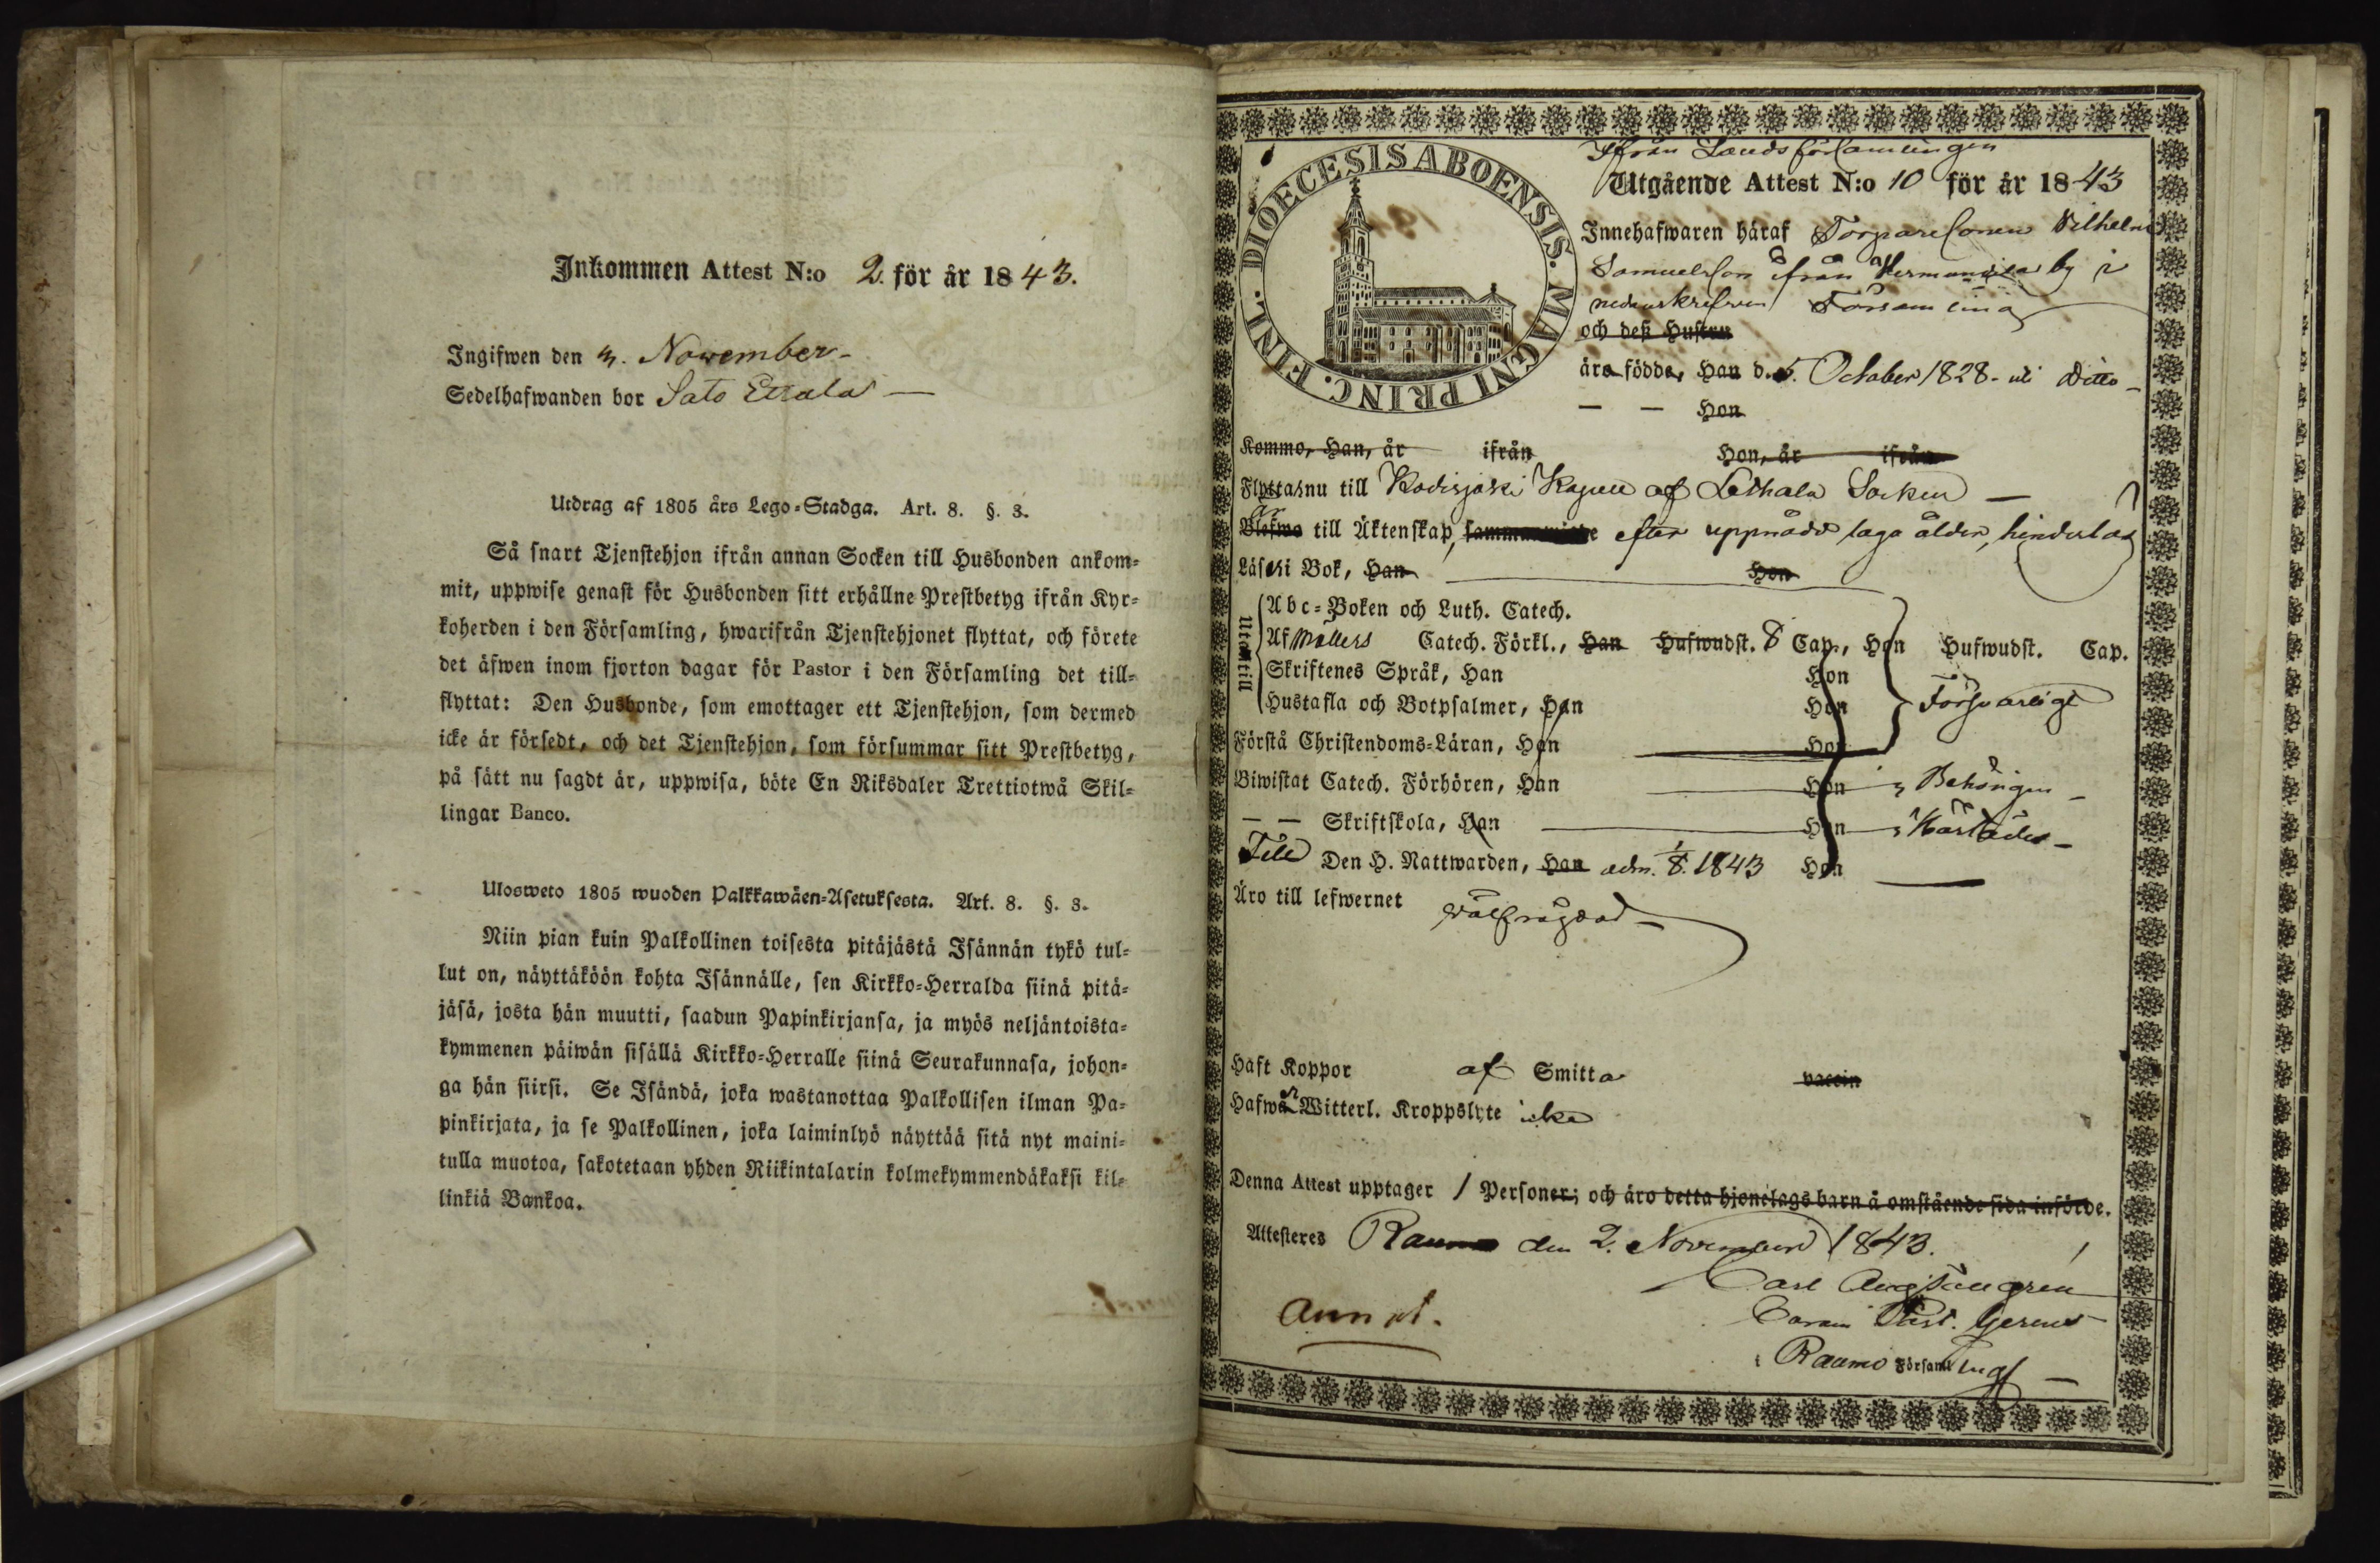 Inkommen Attest N:o 2. för år 1843.
Ingifwen den 3. November
Sedelhafwanden bor Sato Eerola
Utdrag af 1805 års Lego-Stadga. Art. 8. §. 3.
Så snart Tjenstehjon ifrån annan Socken till Husbonden ankom-
mit, uppwise genast för Husbonden sitt erhållne Prestbetyg ifrån Kyr-
koherden i den Församling, hwarifrån Tjenstehjonet flyttat, och förete
det äfwen inom fjorton dagar för Pastor i den Församling det till-
flyttat: Den Husbonde, som emottager ett Tjenstehjon, som dermed
icke är försedt, och det Tjenstehjon, som försummar sitt Prestbetyg,
på sätt nu sagdt är, uppwisa, böte En Riksdaler Trettiotwå Skil-
lingar Banco.
Ulosweto 1805 wuoden Palkkawäen-Asetuksesta. Art. 8. §. 3.
Niin pian kuin Palkollinen toisesta pitäjästä Isännän tykö tul-
lut on, näyttäköön kohta Isännälle, sen Kirkko-Herralda siinä pitä-
jäsä, josta hän muutti, saadun Papinkirjansa, ja myös neljäntoista-
kymmenen päiwän sisällä Kirkko-Herralle siinä Seurakunnasa, johon-
ga hän siirsi. Se Isändä, joka wastanottaa Palkollisen ilman Pa-
pinkirjata, ja se Palkollinen, joka laiminlyö näyttää sitä nyt maini-
tulla muotoa, sakotetaan yhden Riikintalarin kolmekymmendäkaksi kil-
linkiä Bankoa.
DIOECESIS ABOENSIS. MAGNI PRINC. FINL.
Ifrån Landsförsamlingen
Utgående Attest N:o 10 för år 1843
Innehafwaren häraf Torparesonen Vilhelm
Samuelsson ifrån Hermansila by i
nedanskrefven Församling
och dess Hustru
äro födde, Han d. 5. October 1828. uti Ditto
— — Hon
Kommo, Han, år ifrån Hon, år ifrån
Flytta nu till Kodisjoki Kapell af Lethala Socken
är
Blefwo till Äktenskap, efter uppnådd laga ålder, hinderlös
Läsa i Bok, Han Hon
Utantill
Abc-Boken och Luth. Catech.
Af Möllers Catech. Förkl., Han Hufwudst. 8 Cap., Hon Hufwudst. Cap.
Skriftenes Språk, Han Hon
Hustafla och Botpsalmer, Han Hon Försvarligt
Förstå Christendoms-Läran, Han Hon
Biwistat Catech. Förhören, Han Hon Behörigen
— — Skriftskola, Han Hon
Till Den H. Nattwarden, Han adm. 1/8. 1843 Hon
Äro till lefwernet välfrägdad
Haft Koppor af Smitta vaccin
Hafwa Witterl. Kroppslyte icke
Denna Attest upptager 1 Personer; och äro detta hjonelags barn å omstående sida införde.
Attesteres Raumo den 2. November 1843.
Carl Aug
Past. Gerens
Annot.
i Raumo Församling